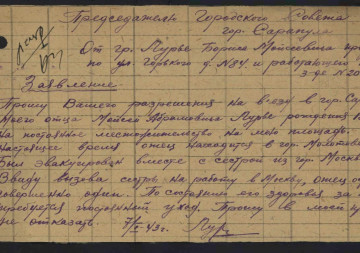 Председателю Городского Совета
гор. Сарапула
От гр. Лурье Бориса Моисеевича
по ул. Горького д. № 84 и работающего
з-де № 20
Заявление.
Прошу Вашего разрешения на въезд в гор. Са
Моего отца Моисея Абрамовича Лурье рождения
на постоянное местожительство на мою площадь.
настоящее время отец находится в гор. Молотов
был эвакуирован вместе с сестрой из гор. Москв
Ввиду вызова сестры на работу в Москву, отец ос
совершенно один. По состоянию его здоровья, за
требуется постоянный уход. Прошу в моей пр
не отказать. 7/I-43г. Лурье